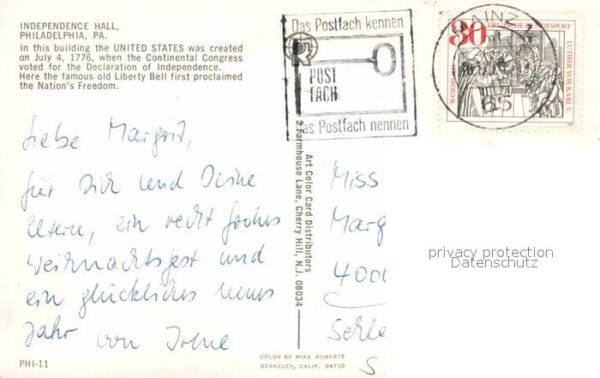 INDEPENDENCE HALL,
PHILADELPHIA, PA.
In this building the UNITED STATES was created
on July 4, 1776, when the Continental Congress
voted for the Declaration of Independence.
Here the famous old Liberty Bell first proclaimed
the Nation's Freedom.
Das Postfach kennen
POST
FACH
Das Postfach nennen
MAINZ
65
30
DEUTSCHE BUNDESPOST
LUTHER VOR KARL V.
WORMS
Liebe Margrit,
für Dich und Deine
Eltern, ein recht frohes
Weihnachtsfest und
ein glückliches neues
Jahr von Irene
Art Color Card Distributors
2 Farmhouse Lane, Cherry Hill, N.J. 08034
Miss
Marg
400
Schle
S
privacy protection
Datenschutz
PHI-11
COLOR BY MIKE ROBERTS
BERKELEY, CALIF. 94710